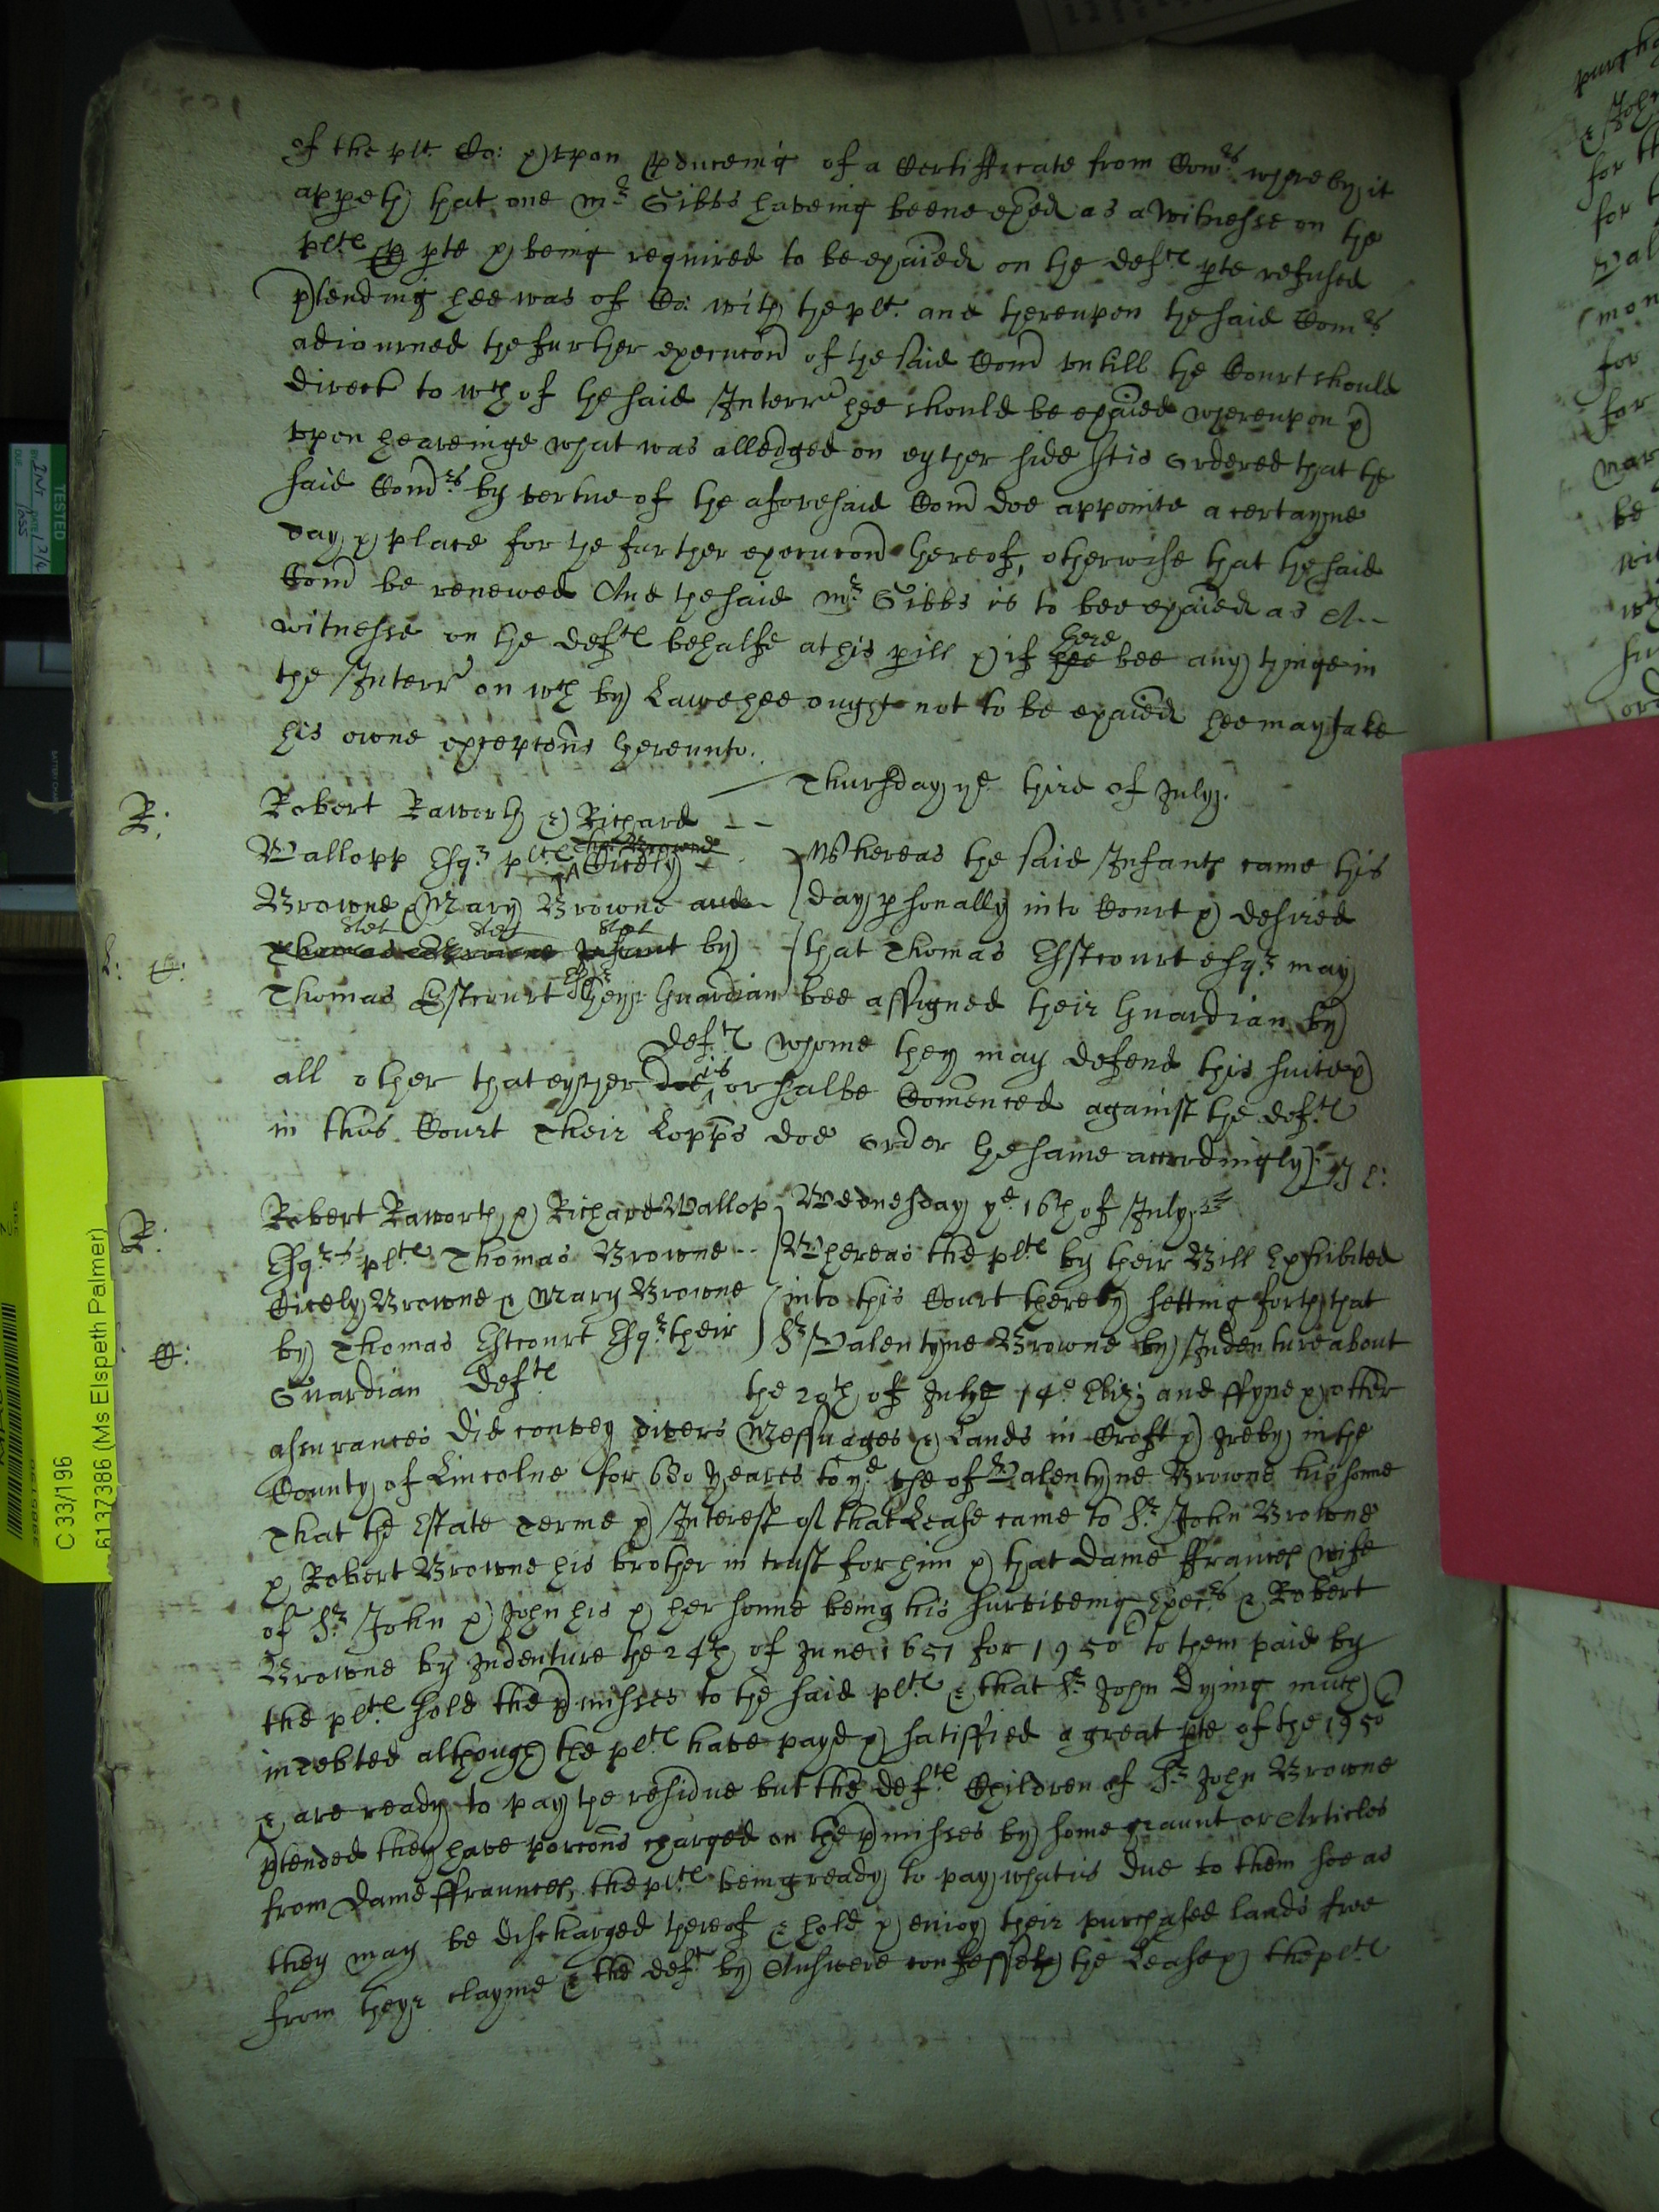 of the plt Co: & upon pduceing of a Certifficate from Comrs whereby it
appeth that one Mr Gibbs haveing beene exed as a witnesse on the
pltes pte & being required to be exaied on the defte pte refused
ptending hee was of Co: with the plt. and thereupon the said Comrs
adiourned the further execucon of the said Com untill the Court should
direct to wch of the said Interr hee should be exaied whereupon &
upon heareinge what was alledged on eyther side It is ordered that the
said Comrs by vertue of the aforesaid Com doe appointe a certayne
day & place for the further execucon thereof, otherwise that the said
Com be renewed And the said Mr Gibbs is to bee exaied as A--
witnesse on the defte behalfe at his pill & if there bee any thinge in
the Interr on wch by Lawe hee ought not to be exaied hee may take
his owne excepcons thereunto.
Thursday ye third of July.
R: Robert Raworth & Richard --
Wallopp Esqr plte Tho: Browne Cicely
Browne & Mary Browne and
Stet Stet Stet
Thomas Browne Infant by
C: Thomas Estcourt Esqr theyr Guardian
defte
Whereas the said Infants came this
day psonally into Court & desired
that Thomas Estcourt esqr may
bee assigned their Guardian by
whome they may defend this suite &
all other that eyther doe is or shalbe Comenced against the defte
in this Court Their Lopps doe order the same accordingly
R: Robert Raworth & Richard Wallop
Esqrs plte Thomas Browne --
Cicely Browne & Mary Browne
C: by Thomas Estcourt Esqr their
Guardian defte
Wednesday ye 16th of July
Whereas the plte by their Bill Exhibited
into this Court thereby setting forth that
Sr Valentyne Browne by Indenture about
the 29th of 14o Eliz; and ffyne & other
assurances did convey divers Messuages & Lands in Croft & Ireby in the
County of Lincolne for 680 yeares to ye use of Valentyne Browne his sonne
That the Estate Terme & Interest of that Lease came to Sr John Browne
& Robert Browne his brother in trust for him & that Dame ffrances wife
of Sr John & John his & her sonne being his surviveing Execrs & Robert
Browne by Indenture the 24th of June 1651 for 1950l to them paid by
the plte sold the pmisses to the said plte & that Sr John dying much
indebted although the plte have payd & satisfied a great pte of the 1950l
& are ready to pay the residue but the defte Children of Sr John Browne
ptended they have porcons charged on the pmisses by some graunt or Articles
from Dame ffraunces, the plte being ready to pay what is due to them soe as
they may be discharged thereof & hold & enioy their purchased lands free
from theyr clayme & the deft by Answere confesseth the Lease & the plte
TESTED
C 33/196
61373386 (Ms Elspeth Palmer)